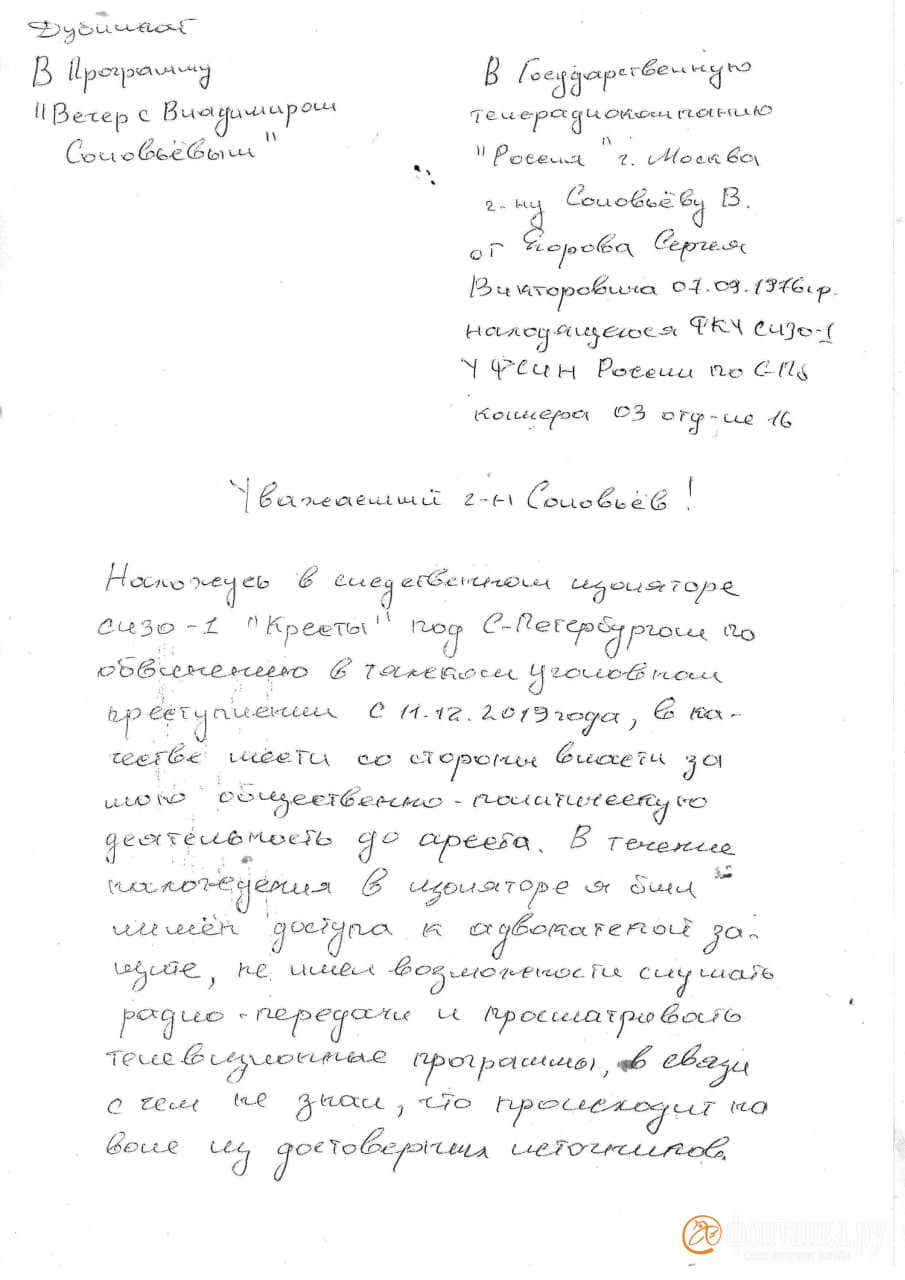 Дубликат
В Программу
"Вечер с Владимиром
Соловьёвым"
В Государственную
телерадиокомпанию
"Россия" г. Москва
г-ну Соловьёву В.
от Егорова Сергея
Викторовича 07.09.1976г.р.
находящегося ФКУ СИЗО-1
УФСИН России по С-Пб
камера 03 отд-ие 16
Уважаемый г-н Соловьёв!
Нахожусь в следственном изоляторе
СИЗО-1 "Кресты" под С-Петербургом по
обвинению в тяжком уголовном
преступлении с 11.12.2019 года, в ка-
честве мести со стороны власти за
мою общественно-политическую
деятельность до ареста. В течение
нахождения в изоляторе я был
лишён доступа к адвокатской за-
щите, не имел возможности слушать
радио-передачи и просматривать
телевизионные программы, в связи
с чем не знал, что происходит на
воле из достоверных источников.
фонтанка.ру